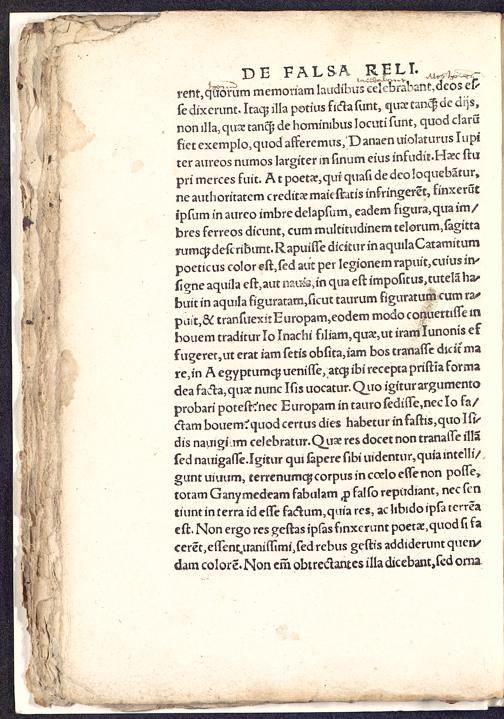 DE FALSA RELI.
rent, quorum memoriam laudibus celebrabant, deos es⸗
se dixerunt. Itaq; illa potius ficta sunt, quæ tanq̃ de dijs,
non illa, quæ tanq̃ de hominibus locuti sunt, quod clarũ
fiet exemplo, quod afferemus, Danaen uiolaturus Iupi
ter aureos numos largiter in sinum eius infudit. Hæc stu
pri merces fuit. At poetæ, qui quasi de deo loquebãtur,
ne authoritatem creditæ maiestatis infringerẽt, finxerũt
ipsum in aureo imbre delapsum, eadem figura, qua im/
bres ferreos dicunt, cum multitudinem telorum, sagitta
rumq; describunt. Rapuisse dicitur in aquila Catamitum
poeticus color est, sed aut per legionem rapuit, cuius in⸗
signe aquila est, aut nauis, in qua est impositus, tutelã ha⸗
buit in aquila figuratam, sicut taurum figuratum cum ra⸗
puit, & transuexit Europam, eodem modo conuertisse in
bouem traditur Io Inachi filiam, quæ, ut iram Iunonis ef
fugeret, ut erat iam setis obsita, iam bos tranasse dicit᷑ ma
re, in Aegyptumq; uenisse, atq; ibi recepta pristĩa forma
dea facta, quæ nunc Isis uocatur. Quo igitur argumento
probari potest? nec Europam in tauro sedisse, nec Io fa/
ctam bouem? quod certus dies habetur in fastis, quo Isi⸗
dis nauigium celebratur. Quæ res docet non tranasse illã
sed nauigasse. Igitur qui sapere sibi uidentur, quia intelli/
gunt uiuum, terrenumq; corpus in cœlo esse non posse,
totam Ganymedeam fabulam ꝓ falso repudiant, nec sen
tiunt in terra id esse factum, quia res, ac libido ipsa terrẽa
est. Non ergo res gestas ipsas finxerunt poetæ, quod si fa
cerẽt, essent uanissimi, sed rebus gestis addiderunt quen⸗
dam colorẽ. Non em̃ obtrectantes illa dicebant, sed orna